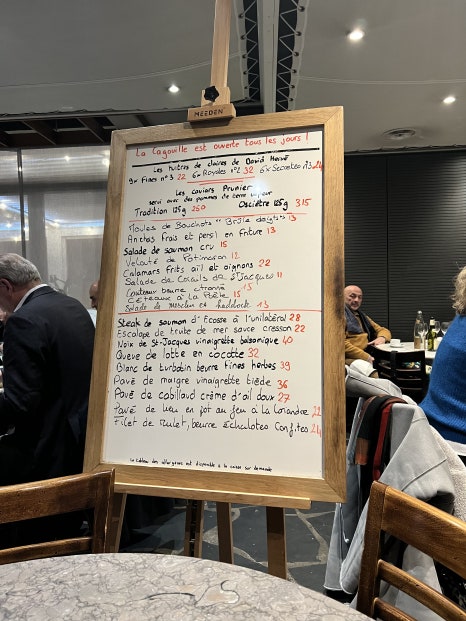 MEEDEN
La Cagouille est ouverte tous les jours !
Les huîtres de claires de David Hervé
9x Fines n°3 22 6x Royales n°2 32 6x Secretes n°3 24
Les caviars Prunier
servi avec des pommes de terre vapeur
Tradition 125g 250 Osciètre 125g 315
Moules de Bouchots "Brûle doigts" 13
Anchois frais et persil en friture 13
Salade de saumon cru 15
Velouté de Potimaron 12
Calamars frits ail et oignons 22
Salade de Corails de St Jacques 11
Couteaux beurre citronné 15
Céteaux à la Poêle 15
Salade de mesclun et haddock 13
Steak de saumon d'Ecosse à l'unilatéral 28
Escalope de truite de mer sauce cresson 22
Noix de St-Jacques vinaigrette balsamique 40
Queue de lotte en cocotte 32
Blanc de turbotin beurre fines herbes 39
Pavé de maigre vinaigrette tiède 36
Pavé de cabillaud crème d'ail doux 27
Pavé de lieu en pot au feu à la Coriandre 22
Filet de mulet, beurre Echalotes Confites 21
Le tableau des allergènes est disponible à la caisse sur demande